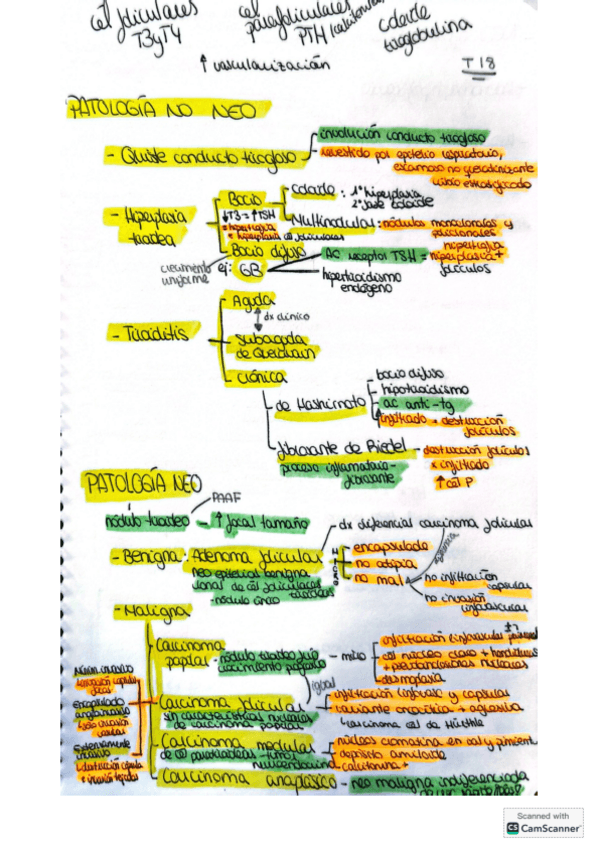 cel foliculares
T3yT4
cel parafoliculares
PTH (calcitonina)
coloide
tiroglobulina
↑ vascularización
T18
PATOLOGÍA NO NEO
- Quiste conducto tirogloso
involución conducto tirogloso
revestido por epitelio respiratorio,
escamoso no queratinizante
cúbico estratificado
- Hiperplasia
tiroidea
Bocio
↓T3 = ↑TSH
hipertrofia
+ hiperplasia cel foliculares
Coloide: 1º hiperplasia
2º fase coloide
Multinodular: nódulos monoclonales y
policlonales
Bocio difuso
crecimiento
uniforme
ej: GB
AC receptor TSH = hipertrofia
hiperplasia +
folículos
hipertiroidismo
endógeno
- Tiroiditis
Aguda
dx clínico
Subaguda
de Quervain
Crónica
de Hashimoto
bocio difuso
hipotiroidismo
ac anti-tg
↑ infiltrado + destrucción
folículos
fibrosante de Riedel
proceso inflamatorio-
fibrosante
destrucción folículos
x infiltrado
↑ cél P
PATOLOGÍA NEO
PAAF
nódulo tiroideo - ↑ focal tamaño
- Benigna: Adenoma folicular
neo epitelial benigna
clonal de cél foliculares
- nódulo único
tiroideas
dx diferencial carcinoma folicular
encapsulado
no atipia
no mal
no infiltración
capsular
no invasión
linfovascular
- Maligna
Carcinoma
papilar
- nódulo tiroideo frío
crecimiento
- micro
infiltración linfovascular
cél núcleo claro + hendiduras
+ pseudoinclusiones nucleares
desmoplasia
igual
Carcinoma folicular
sin características nucleares
de carcinoma papilar
infiltración linfovasc y capsular
variante oncocítica + agresiva
↳ carcinoma cél de Hürthle
Carcinoma medular
de cél parafoliculares - tumor
neuroendocrino
núcleos cromatina en sal y pimienta
depósito amiloide
calcitonina +
Carcinoma anaplásico - neo maligna indiferenciada
encapsulado
angioinvasivo
extensamente
invasivo
destrucción cápsula
Scanned with
CS CamScanner